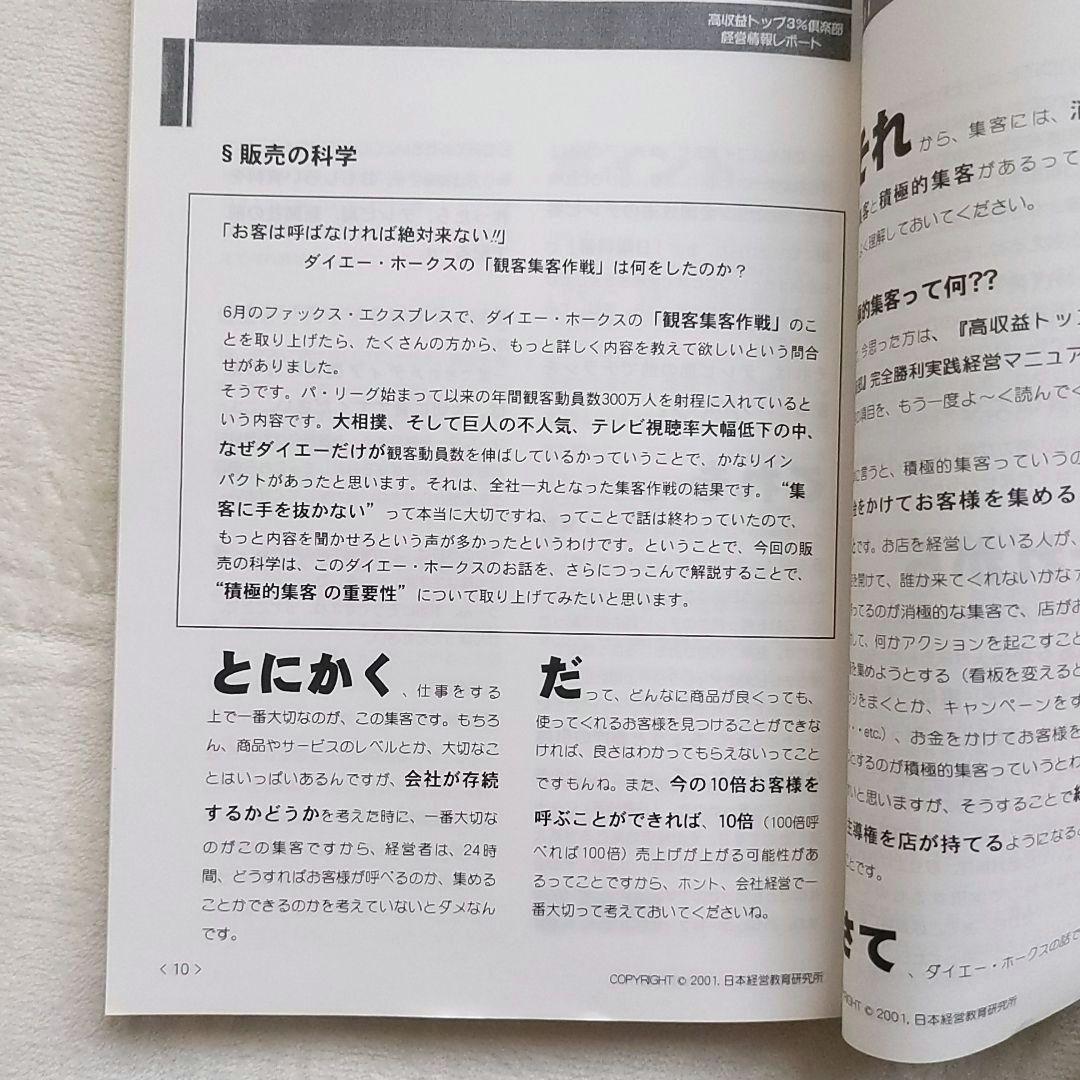 高収益トップ3%倶楽部
経営情報レポート
§販売の科学
「お客は呼ばなければ絶対来ない!!」
ダイエー・ホークスの「観客集客作戦」は何をしたのか？
6月のファックス・エクスプレスで、ダイエー・ホークスの「観客集客作戦」のこ
とを取り上げたら、たくさんの方から、もっと詳しく内容を教えて欲しいという問合
せがありました。
そうです。パ・リーグ始まって以来の年間観客動員数300万人を射程に入れていると
いう内容です。大相撲、そして巨人の不人気、テレビ視聴率大幅低下の中、
なぜダイエーだけが観客動員数を伸ばしているかっていうことで、かなりイン
パクトがあったと思います。それは、全社一丸となった集客作戦の結果です。“集
客に手を抜かない”って本当に大切ですね、ってことで話は終わっていたので、
もっと内容を聞かせろという声が多かったというわけです。ということで、今回の販
売の科学は、このダイエー・ホークスのお話を、さらにつっこんで解説することで、
“積極的集客 の重要性”について取り上げてみたいと思います。
とにかく、仕事をする
上で一番大切なのが、この集客です。もちろ
ん、商品やサービスのレベルとか、大切なこ
とはいっぱいあるんですが、会社が存続
するかどうかを考えた時に、一番大切な
のがこの集客ですから、経営者は、24時
間、どうすればお客様が呼べるのか、集める
ことができるのかを考えていないとダメなん
です。
だって、どんなに商品が良くっても、
使ってくれるお客様を見つけることができな
ければ、良さはわかってもらえないってこと
ですもんね。また、今の10倍お客様を
呼ぶことができれば、10倍（100倍呼
べれば100倍）売上げが上がる可能性があ
るってことですから、ホント、会社経営で一
番大切って考えておいてくださいね。
<10>
COPYRIGHT © 2001, 日本経営教育研究所
それから、集客には、
客と積極的集客があるって
く理解しておいてください。
的集客って何??
今思った方は、『高収益トップ
』完全勝利実践経営マニュア
の項目を、もう一度よ～く読んでく
に言うと、積極的集客っていうの
金をかけてお客様を集める
とです。お店を経営している人が、
を開けて、誰か来てくれないかな
ってるのが消極的な集客で、店がお
して、何かアクションを起こすこと
を集めようとする（看板を変えると
シをまくとか、キャンペーンをす
・・etc.）、お金をかけてお客様を
にするのが積極的集客っていうとわ
いと思いますが、そうすることで
主導権を店が持てるようになるの
ことです。
さて、ダイエー・ホークスの話で
RIGHT © 2001, 日本経営教育研究所